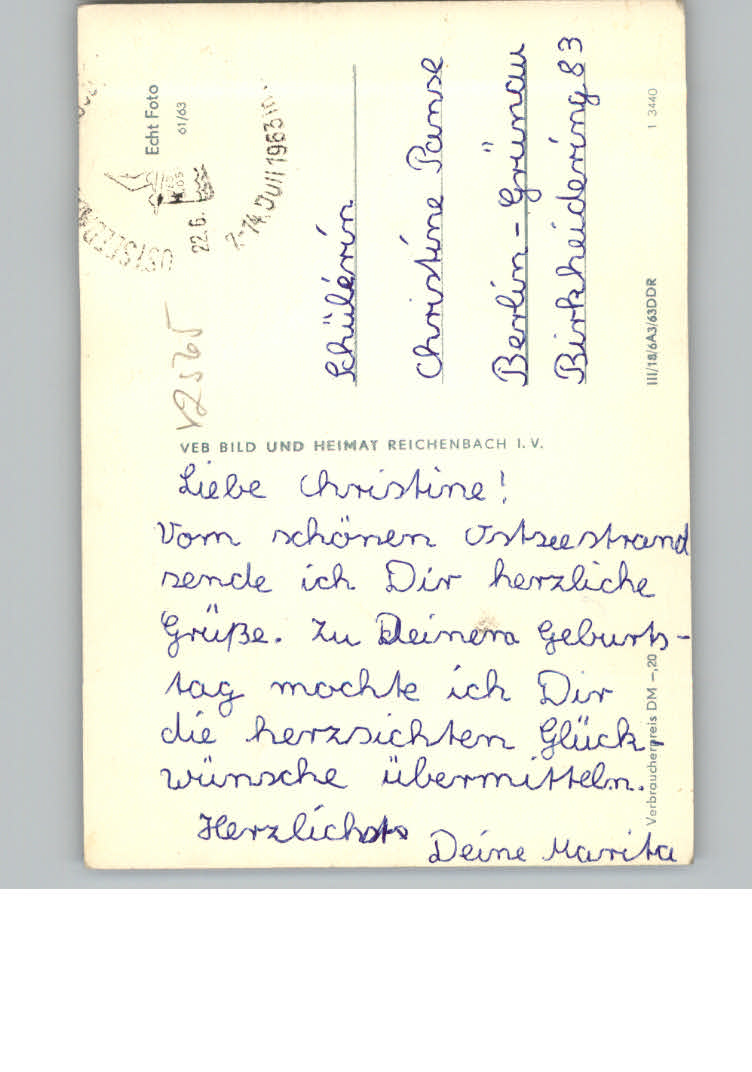 Echt Foto
61/63
22.6.
7.-14. Juli 1963
V2565
Schülerin
Christine Panse
Berlin - Grünau
Birkheidering 83
1 3440
III/18/6A3/63DDR
VEB BILD UND HEIMAT REICHENBACH I. V.
Liebe Christine!
Vom schönen Ostseestrand
sende ich Dir herzliche
Grüße. Zu Deinem Geburts-
tag mochte ich Dir
die herzsichten Glück-
wünsche übermitteln.
Herzlichst
Deine Marita
Verbraucherpreis DM -,20